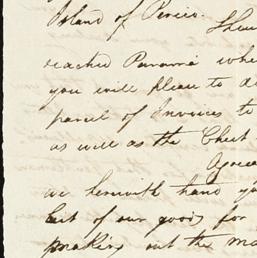 Island of Perico.
Shou
reached Panamá whe
you will please to d
parcel of Invoices to
as well as the Chest
Agree
we herewith hand yo
List of our goods for
making out the ma